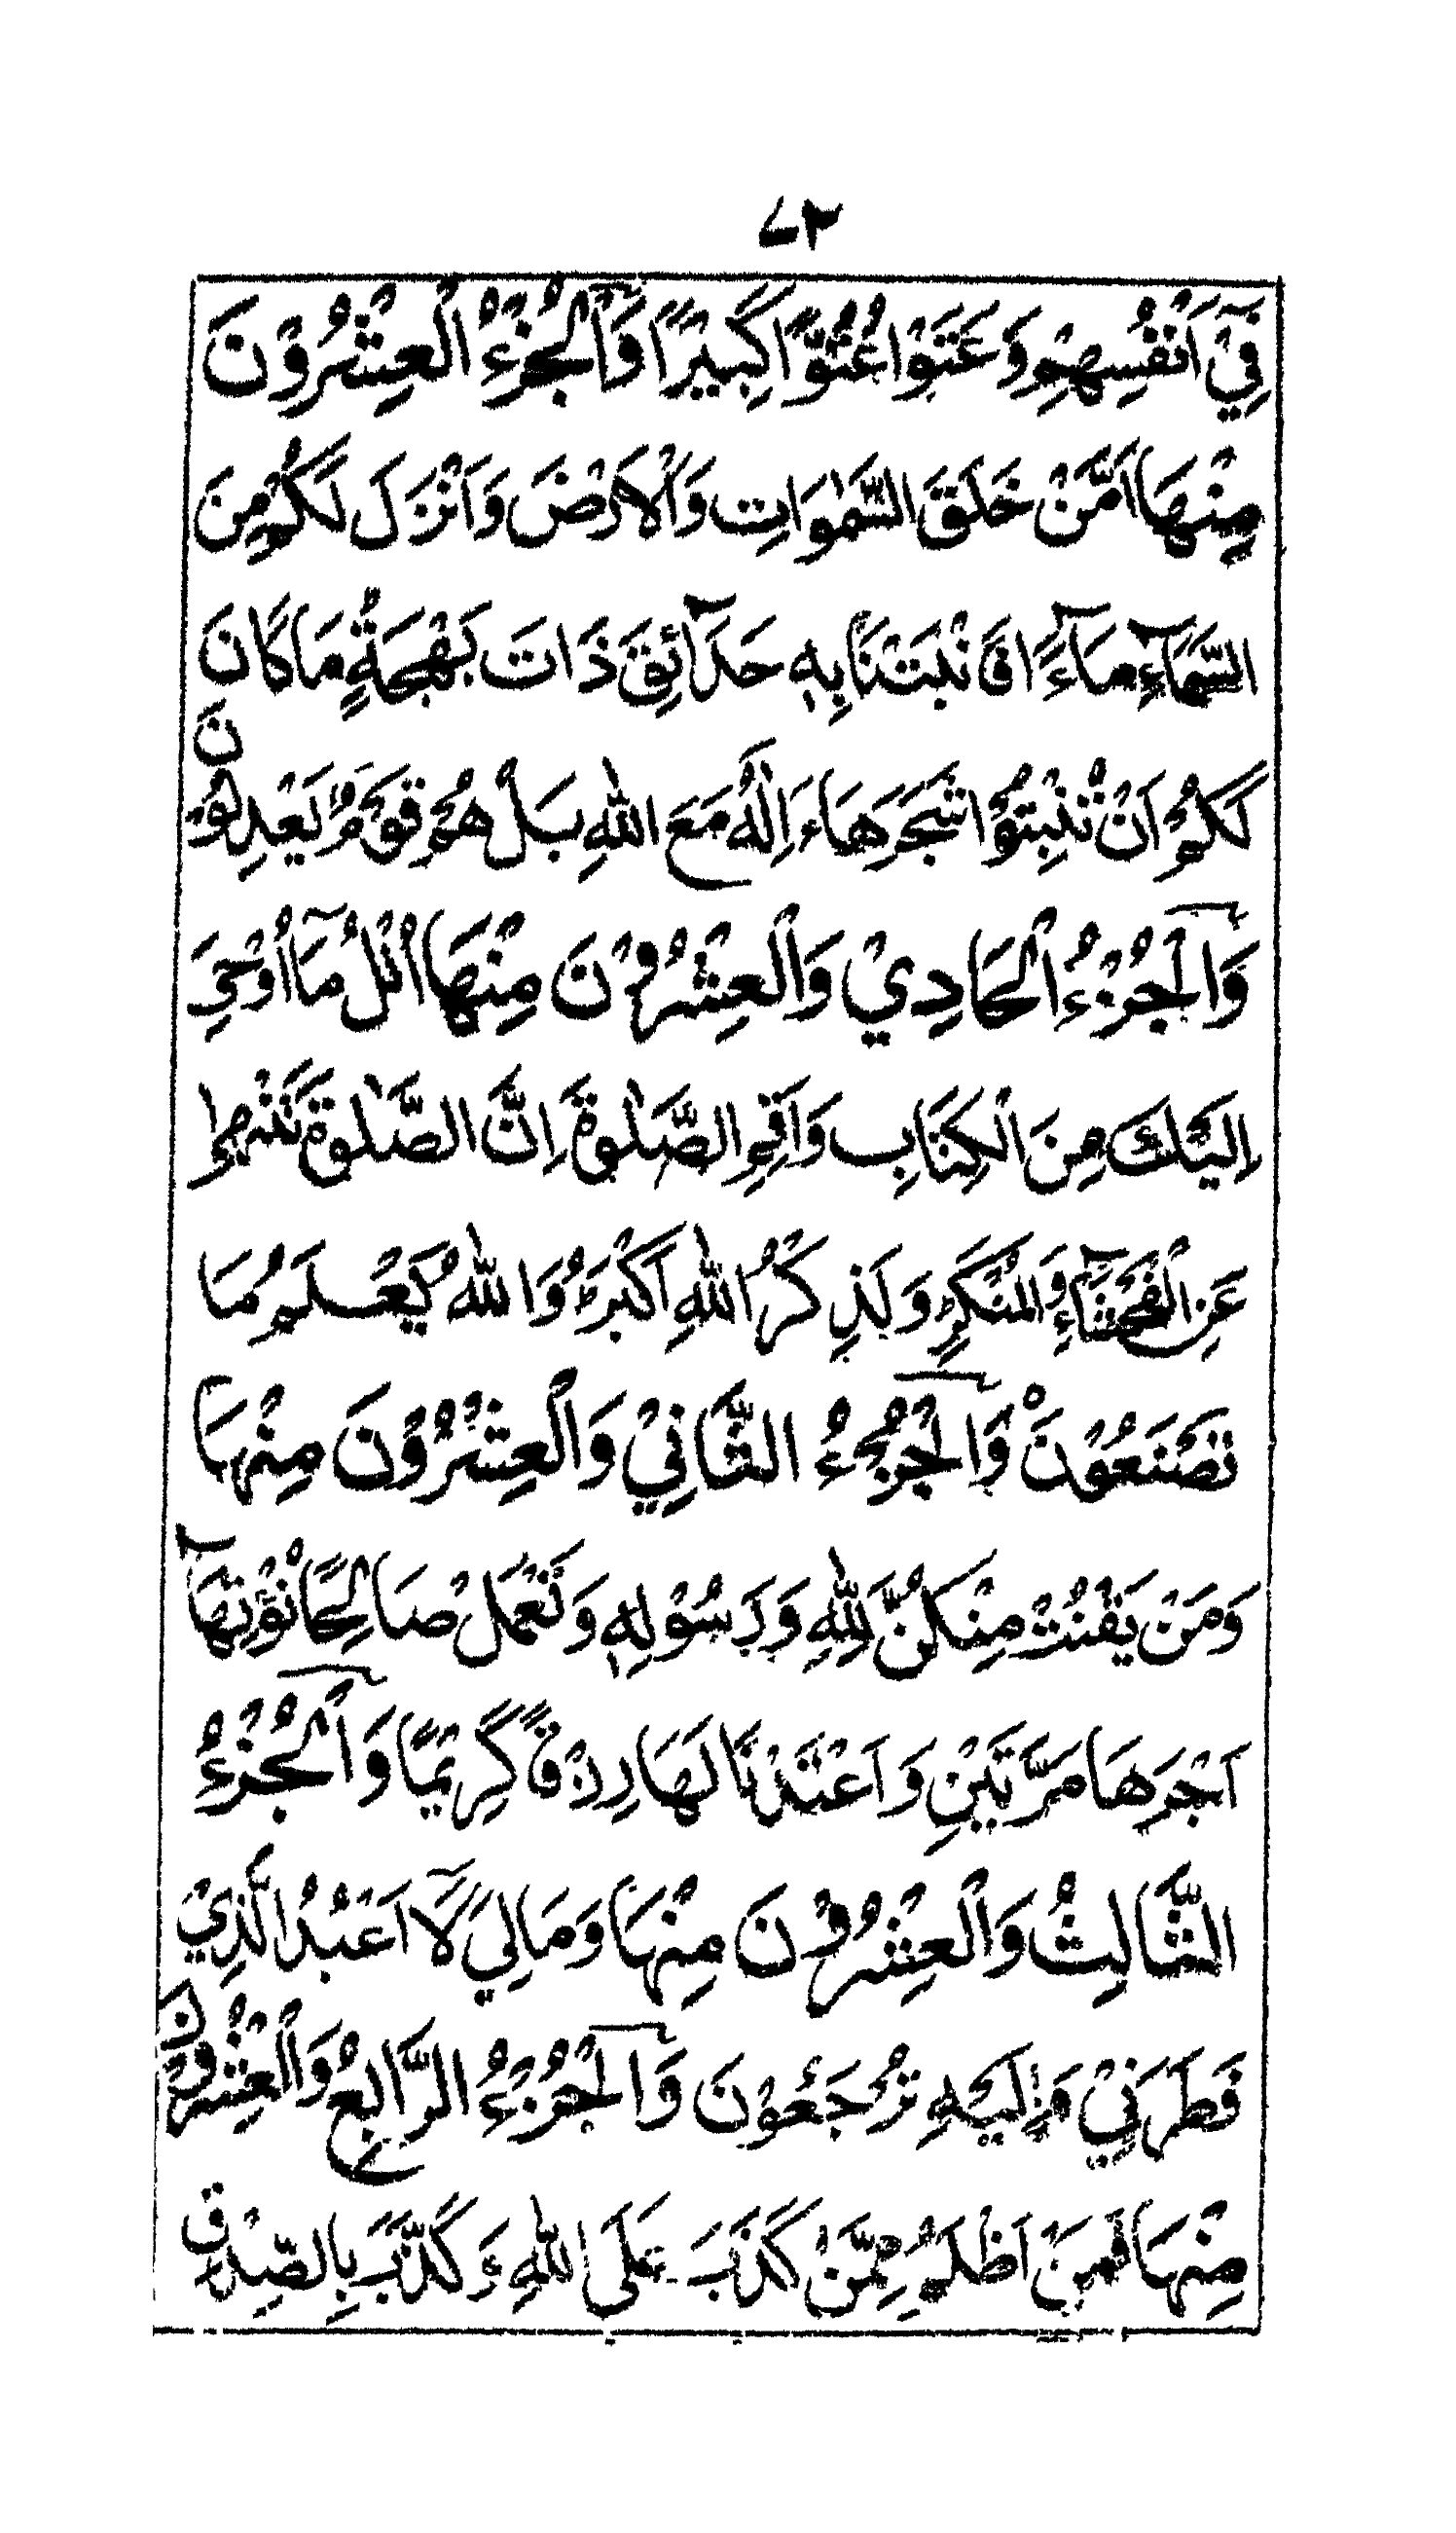 ٧٢
فِيْٓ اَنْفُسِهِمْ وَعَتَوْا عُتُوًّا كَبِيْرًا وَالْجُزْءُ الْعِشْرُوْنَ
مِنْهَا اَمَّنْ خَلَقَ السَّمٰوَاتِ وَالْاَرْضَ وَاَنْزَلَ لَكُمْ مِنَ
السَّمَآءِ مَآءً فَاَنْبَتْنَا بِهٖ حَدَآئِقَ ذَاتَ بَهْجَةٍ مَا كَانَ
لَكُمْ اَنْ تُنْبِتُوْا شَجَرَهَا ءَاِلٰهٌ مَعَ اللّٰهِ بَلْ هُمْ قَوْمٌ يَعْدِلُوْنَ
وَالْجُزْءُ الْحَادِيْ وَالْعِشْرُوْنَ مِنْهَا اُتْلُ مَآ اُوْحِيَ
اِلَيْكَ مِنَ الْكِتَابِ وَاَقِمِ الصَّلٰوةَ اِنَّ الصَّلٰوةَ تَنْهٰى
عَنِ الْفَحْشَآءِ وَالْمُنْكَرِ وَلَذِكْرُ اللّٰهِ اَكْبَرُ وَاللّٰهُ يَعْلَمُ مَا
تَصْنَعُوْنَ وَالْجُزْءُ الثَّانِيْ وَالْعِشْرُوْنَ مِنْهَا
وَمَنْ يَقْنُتْ مِنْكُنَّ لِلّٰهِ وَرَسُوْلِهٖ وَتَعْمَلْ صَالِحًا نُؤْتِهَآ
اَجْرَهَا مَرَّتَيْنِ وَاَعْتَدْنَا لَهَا رِزْقًا كَرِيْمًا وَالْجُزْءُ
الثَّالِثُ وَالْعِشْرُوْنَ مِنْهَا وَمَالِيَ لَآ اَعْبُدُ الَّذِيْ
فَطَرَنِيْ وَاِلَيْهِ تُرْجَعُوْنَ وَالْجُزْءُ الرَّابِعُ وَالْعِشْرُوْنَ
مِنْهَا فَمَنْ اَظْلَمُ مِمَّنْ كَذَبَ عَلَى اللّٰهِ وَكَذَّبَ بِالصِّدْقِ